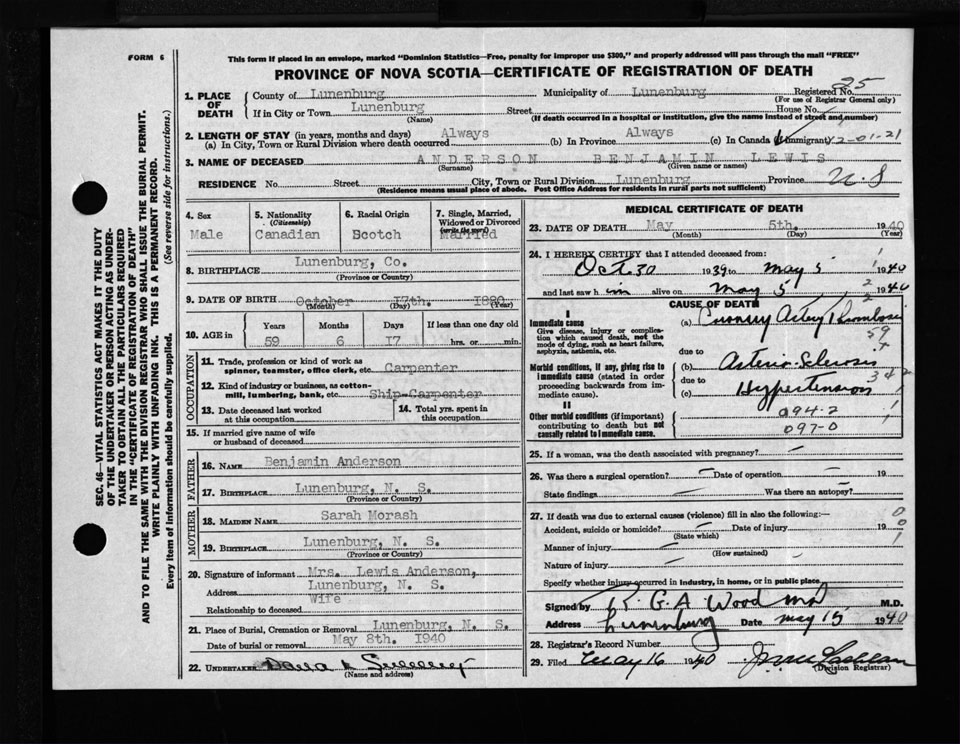 FORM 6
This form if placed in an envelope, marked "Dominion Statistics—Free, penalty for improper use $300," and properly addressed will pass through the mail "FREE"
PROVINCE OF NOVA SCOTIA—CERTIFICATE OF REGISTRATION OF DEATH
SEC. 46—VITAL STATISTICS ACT MAKES IT THE DUTY
OF THE UNDERTAKER OR PERSON ACTING AS UNDER-
TAKER TO OBTAIN ALL THE PARTICULARS REQUIRED
IN THE "CERTIFICATE OF REGISTRATION OF DEATH"
AND TO FILE THE SAME WITH THE DIVISION REGISTRAR WHO SHALL ISSUE THE BURIAL PERMIT.
WRITE PLAINLY WITH UNFADING INK. THIS IS A PERMANENT RECORD.
Every item of information should be carefully supplied. (See reverse side for instructions.)
1. PLACE OF DEATH
County of Lunenburg Municipality of Lunenburg Registered No. 25
(For use of Registrar General only)
If in City or Town Lunenburg Street House No.
(Name) (If death occurred in a hospital or institution, give the name instead of street and number)
2. LENGTH OF STAY (in years, months and days)
(a) In City, Town or Rural Division where death occurred Always (b) In Province Always (c) In Canada if immigrant 42-01-21
3. NAME OF DECEASED ANDERSON BENJAMIN LEWIS
(Surname) (Given name or names)
RESIDENCE No. Street City, Town or Rural Division Lunenburg Province N.S
(Residence means usual place of abode. Post Office Address for residents in rural parts not sufficient)
4. Sex
Male
5. Nationality
(Citizenship)
Canadian
6. Racial Origin
Scotch
7. Single, Married,
Widowed or Divorced
(write the word)
Married
8. BIRTHPLACE Lunenburg, Co.
(Province or Country)
9. DATE OF BIRTH October 17th. 1880
(Month) (Day) (Year)
10. AGE in
Years Months Days If less than one day old
59 6 17 hrs. or min.
OCCUPATION
11. Trade, profession or kind of work as
spinner, teamster, office clerk, etc. Carpenter
12. Kind of industry or business, as cotton-
mill, lumbering, bank, etc. Ship-Carpenter
13. Date deceased last worked
at this occupation
14. Total yrs. spent in
this occupation
15. If married give name of wife
or husband of deceased
FATHER
16. NAME Benjamin Anderson
17. BIRTHPLACE Lunenburg, N. S.
(Province or Country)
MOTHER
18. MAIDEN NAME Sarah Morash
19. BIRTHPLACE Lunenburg, N. S.
(Province or Country)
20. Signature of informant Mrs. Lewis Anderson,
Address Lunenburg, N. S.
Relationship to deceased Wife
21. Place of Burial, Cremation or Removal Lunenburg, N. S.
Date of burial or removal May 8th. 1940
22. UNDERTAKER
(Name and address)
MEDICAL CERTIFICATE OF DEATH
23. DATE OF DEATH May 5th. 1940
(Month) (Day) (Year)
24. I HEREBY CERTIFY that I attended deceased from:
Oct. 30 1939 to May 5 1940
and last saw him alive on May 5 1940
CAUSE OF DEATH
I
Immediate cause
Give disease, injury or complica-
tion which caused death, not the
mode of dying, such as heart failure,
asphyxia, asthenia, etc.
(a) Coronary Artery Thrombosis
due to
Morbid conditions, if any, giving rise to
immediate cause (stated in order
proceeding backwards from im-
mediate cause).
(b) Arterio-Sclerosis
due to
(c) Hypertension
II
Other morbid conditions (if important)
contributing to death but not
causally related to immediate cause.
094-2
097-0
25. If a woman, was the death associated with pregnancy?
26. Was there a surgical operation? Date of operation 19
State findings Was there an autopsy?
27. If death was due to external causes (violence) fill in also the following:—
Accident, suicide or homicide? Date of injury 19
(State which)
Manner of injury
(How sustained)
Nature of injury
Specify whether injury occurred in industry, in home, or in public place
Signed by R. G. A Wood md M.D.
Address Lunenburg Date May 15 1940
28. Registrar's Record Number
29. Filed May 16 1940
(Division Registrar)